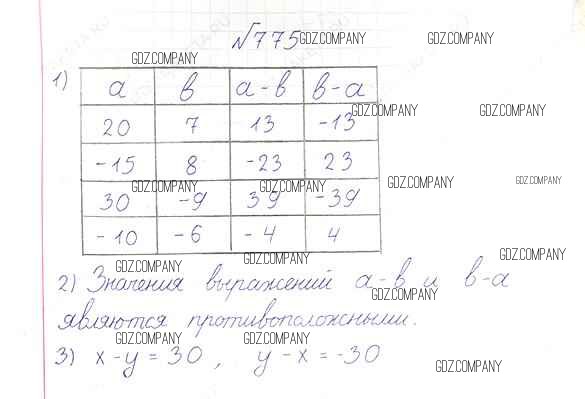 №775 GDZ.COMPANY GDZ.COMPANY
GDZ.COMPANY
1) а в а-в в-а
20 7 13 -13
GDZ.COMPANY GDZ.COMPANY
-15 8 -23 23
GDZ.COMPANY GDZ.COMPANY GDZ.COMPANY GDZ.COMPANY
30 -9 39 -39
-10 -6 -4 4
GDZ.COMPANY GDZ.COMPANY GDZ.COMPANY
2) Значения выражений а-в и в-а
GDZ.COMPANY
являются противоположными.
GDZ.COMPANY GDZ.COMPANY
3) x-y=30, y-x=-30
GDZ.COMPANY